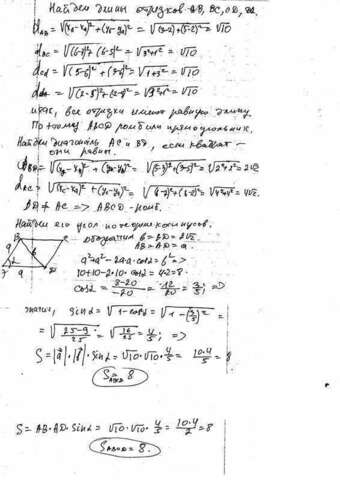 Найдем длины отрезков AB, BC, CD, DA.
d_AB = √(x_B-x_A)² + (y_B-y_A)² = √(3-2)² + (5-2)² = √10
d_BC = √(6-3)² + (6-5)² = √3²+1² = √10
d_CD = √(5-6)² + (3-6)² = √1+3² = √10
= √10
итак, все отрезки имеют равную длину.
Поэтому ABCD ромб или прямоугольник.
Найдем диагонали AC и BD, если квадрат –
они равны.
= 2√2
d_AC = √(x_C-x_A)² + (y_C-y_A)² = √(6-2)² + (6-2)² = √4²+4² = 4√2.
BD ≠ AC => ABCD - ромб.
Найдем его угол по теореме косинусов.
обозначим b = BD = 2√2.
AB = AD = a.
a²+a²-2a·a·cos2 = b² =>
10+10-2·10·cos2 = 4·2 = 8.
cos2 = 8-20/-20 = 12/20 = 3/5; =>
значит, sin2 = √1-cos²2 = √1-(3/5)² =
= √25-9/25 = √16/25 = 4/5; =>
S = |a|·|b|·sin2 = √10·√10·4/5 = 10·4/5 = 8
S_ABCD = 8
S = AB·AD·Sin2 = √10·√10·4/5 = 10·4/5 = 8
S_ABCD = 8.